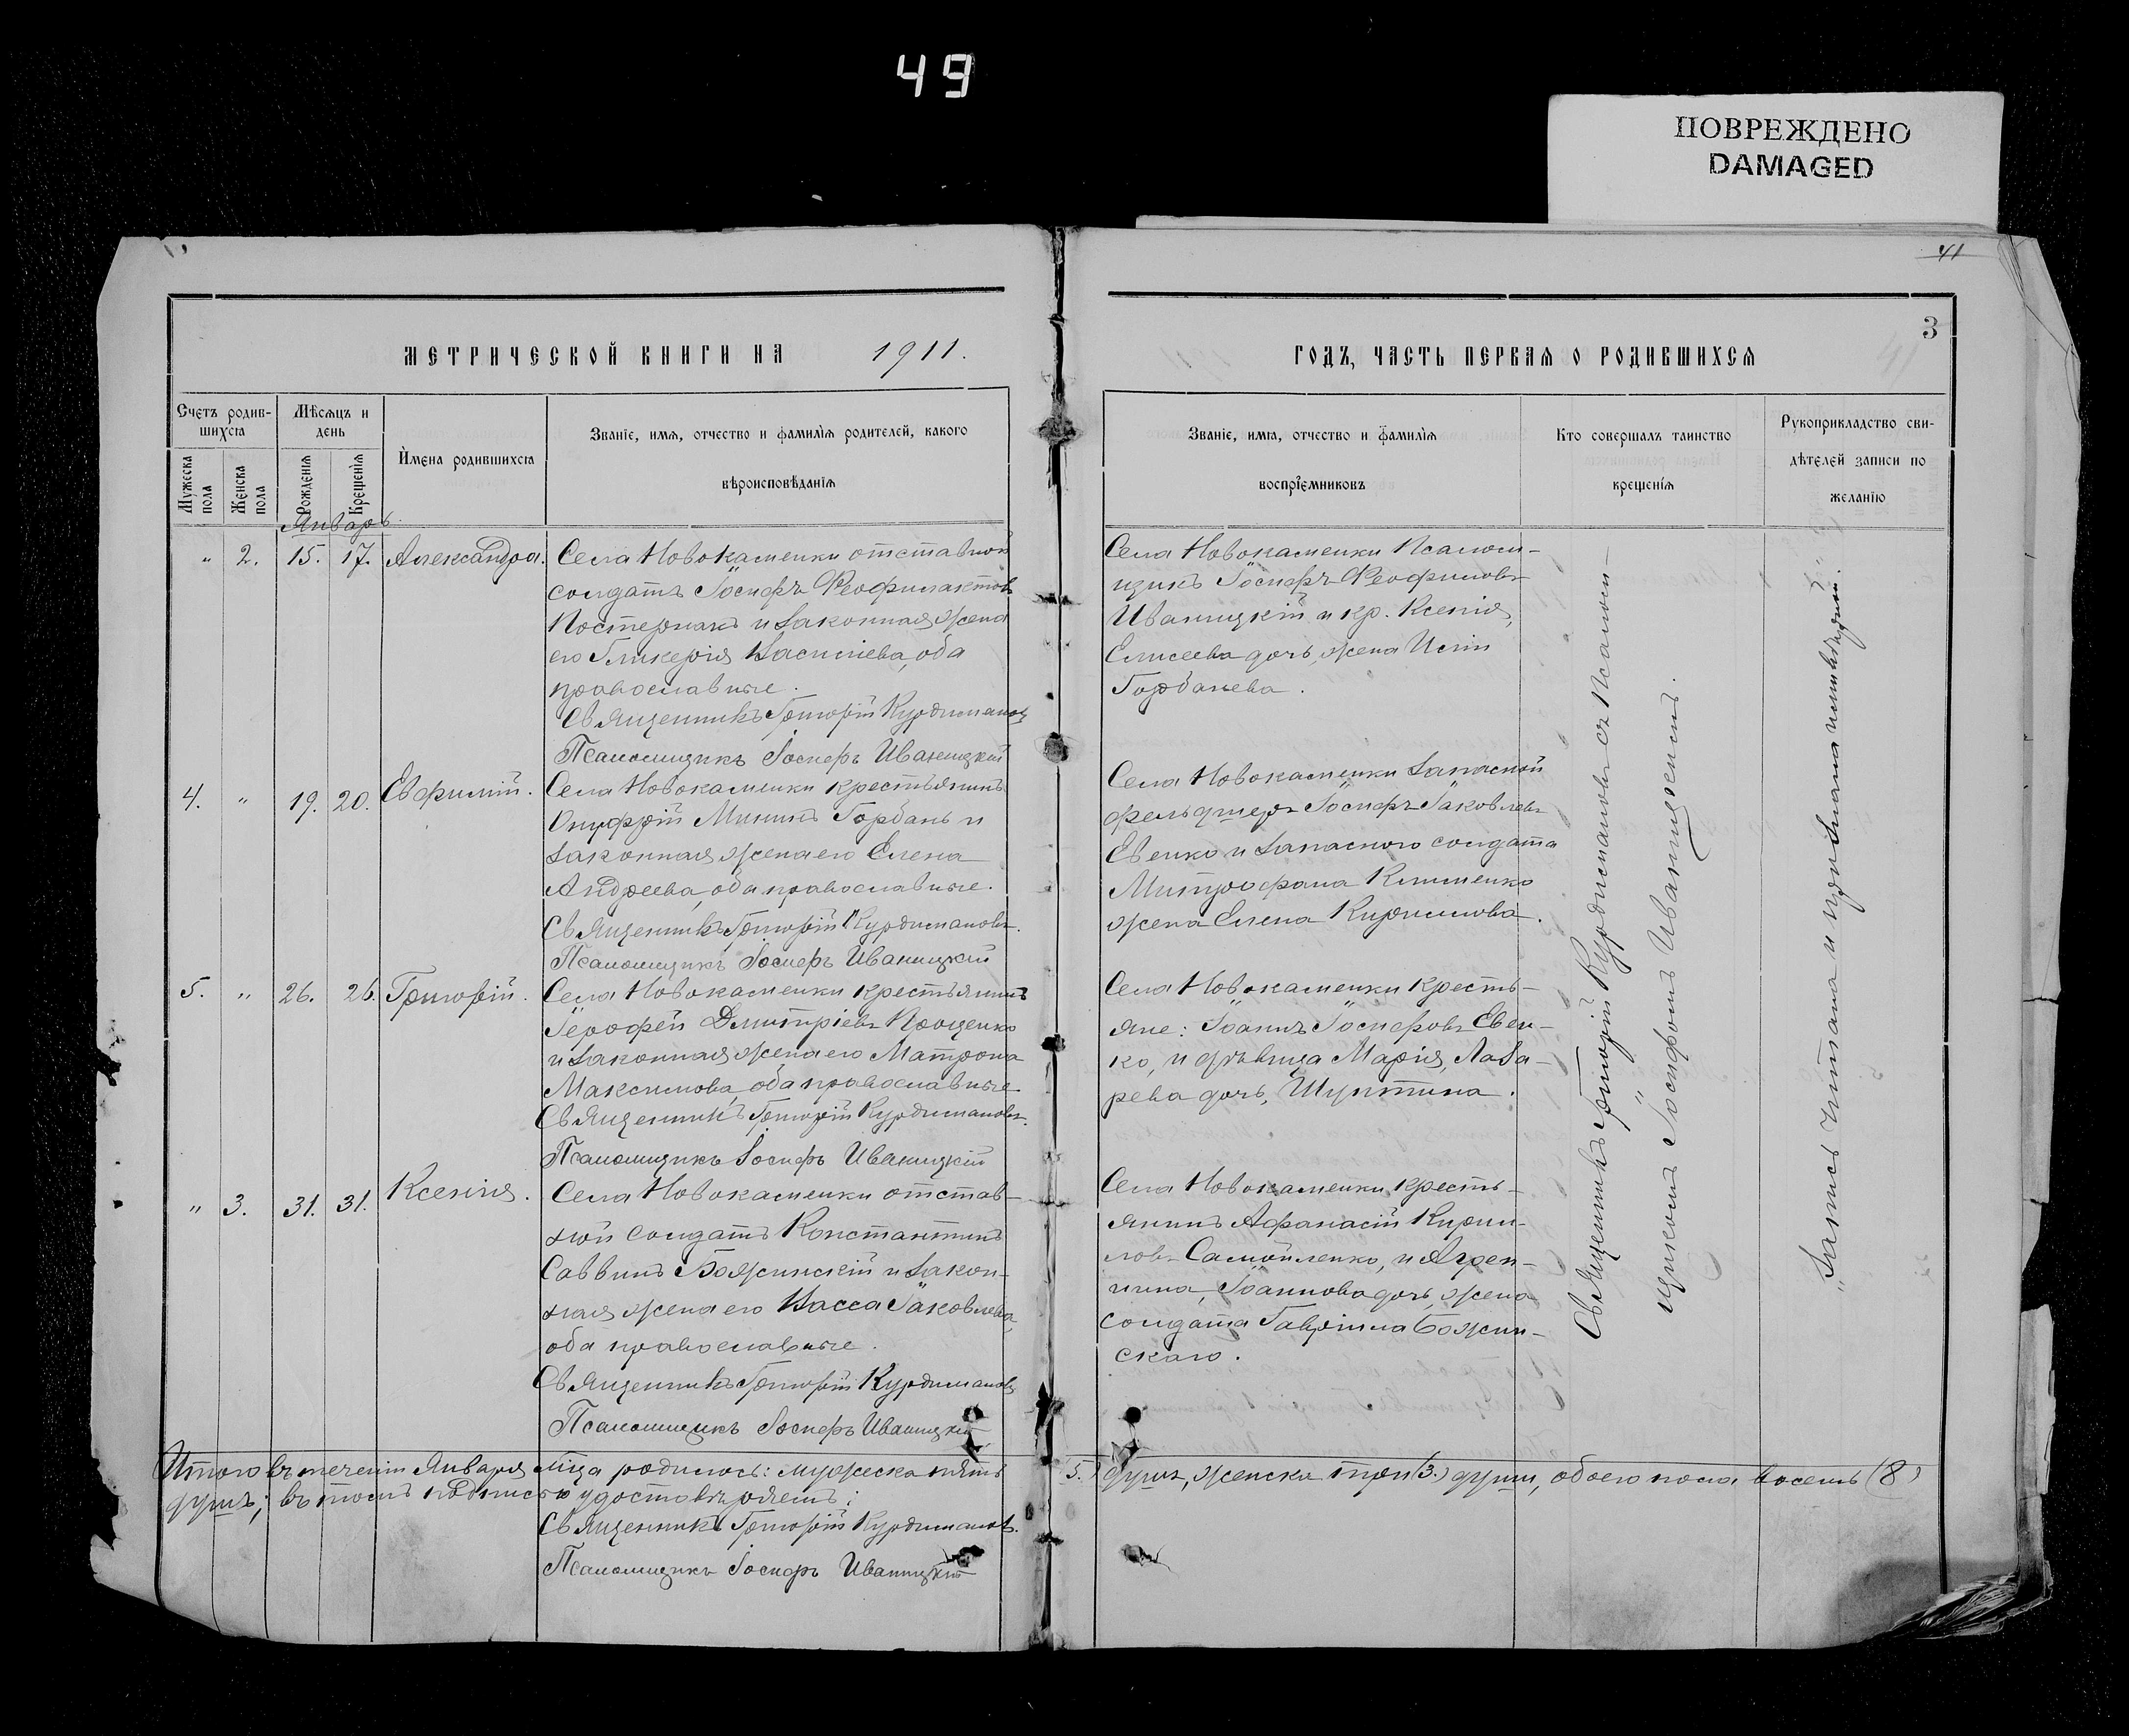 49
ПОВРЕЖДЕНО
DAMAGED
41
3
МЕТРИЧЕСКОЙ КНИГИ НА 1911.
ГОДЪ, ЧАСТЬ ПЕРВАЯ О РОДИВШИХСЯ
Счетъ родив-
шихся
Мужеска пола
Женска пола
Мѣсяцъ и
день
Рожденія
Крещенія
Имена родившихся
Званіе, имя, отчество и фамилія родителей, какого
вѣроисповѣданія
Званіе, имя, отчество и фамилія
воспріемниковъ
Кто совершалъ таинство
крещенія
Рукоприкладство сви-
дѣтелей записи по
желанію
Январь
" 2. 15. 17. Александра.
Села Новокаменки отставной
солдатъ Іосифъ Феофилактовъ
Постернакъ и законная жена
его Гликерія Василиева, оба
православные.
Священникъ Григорій Курдимановъ
Псаломщикъ Іосифъ Иваницкій
Села Новокаменки Псалом-
щикъ Іосифъ Феофиловъ
Иваницкій и кр. Ксенія,
Елисеева дочь, жена
Горбанева.
4. " 19. 20. Евфимій.
Села Новокаменки крестьянинъ
Онуфрій Мининъ Горбань и
законная жена его Елена
Андреева, оба православные.
Священникъ Григорій Курдимановъ.
Псаломщикъ Іосифъ Иваницкій
Села Новокаменки запасной
фельдшеръ Іосифъ Іаковлевъ
Евенко и запасного солдата
Митрофана Клименко
жена Елена Кириллова.
5. " 26. 26. Григорій.
Села Новокаменки крестьянинъ
Іерофей Дмитріевъ Проценко
и законная жена его Матрона
Максимова, оба православные
Священникъ Григорій Курдимановъ.
Псаломщикъ Іосифъ Иваницкій
Села Новокаменки кресть-
яне: Іоаннъ Іосифовъ Евен-
ко, и дѣвица Марія, Лаза-
рева дочь, Шуптина.
" 3. 31. 31. Ксенія.
Села Новокаменки отстав-
ной солдатъ Константинъ
Саввинъ Божинскій и закон-
ная жена его Васса Іаковлева,
оба православные.
Священникъ Григорій Курдимановъ
Псаломщикъ Іосифъ Иваницкій
Села Новокаменки кресть-
янинъ Афанасій Кирил-
ловъ Самойленко, и Агрип-
пина, Іоаннова дочь, жена
солдата Гавріила Божин-
скаго.
Священникъ Григорій Курдимановъ съ Псалом-
щикомъ Іосифомъ Иваницкимъ.
"Запись читана и признана
Итого въ теченіи Января мѣсяца родилось: мужеска пять 5.) душъ, женска три (3.) души, обоего пола восемь (8)
душъ; въ томъ подписью удостовѣряемъ:
Священникъ Григорій Курдимановъ.
Псаломщикъ Іосифъ Иваницкій